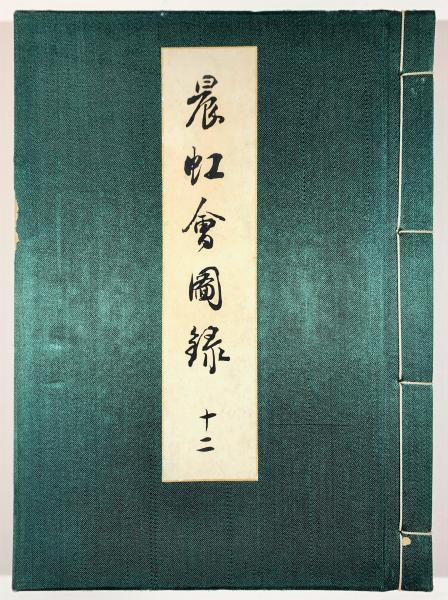 晨虹會圖録 十二